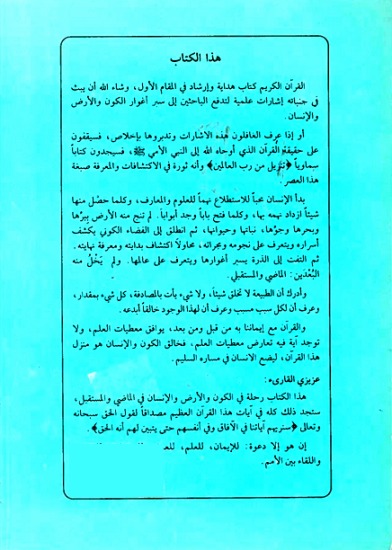 هذا الكتاب
القرآن الكريم كتاب هداية وإرشاد في المقام الأول، وشاء الله أن يبث
في جنباته إشارات علمية لتدفع الباحثين إلى سبر أغوار الكون والأرض
والإنسان.
أو إذا عرف الغافلون هذه الاشارات وتدبروها بإخلاص، فسيقفون
على حقيقة القرآن الذي أوحاه الله إلى النبي الأمي ﷺ، فسيجدون كتاباً
سماوياً ﴿تنزيل من رب العالمين﴾ وأنه ثورة في الاكتشافات والمعرفة صبغة
هذا العصر.
بدأ الإنسان محباً للاستطلاع نهماً للعلوم والمعارف، وكلما حصل منها
شيئاً ازداد نهمه بها، وكلما فتح باباً وجد أبواباً. لم تنج منه الأرض ببرها
وبحرها وجوها، نباتها وحيوانها، ثم انطلق إلى الفضاء الكوني يكشف
أسراره ويتعرف على نجومه ومجراته، محاولاً اكتشاف بدايته ومعرفة نهايته.
ثم التفت إلى الذرة يسبر أغوارها ويتعرف على عالمها. ولم يَخْلُ منه
البُعْدَين: الماضي والمستقبلي.
وأدرك أن الطبيعة لا تخلق شيئاً، ولا شيء يأت بالمصادفة، كل شيء بمقدار،
وعرف أن لكل سبب مسبب وعرف أن لهذا الوجود خالقاً أبدعه.
والقرآن مع إيماننا به من قبل ومن بعد، يوافق معطيات العلم، ولا
توجد آية فيه تعارض معطيات العلم، فخالق الكون والإنسان هو منزل
هذا القرآن، ليضع الانسان في مساره السليم.
عزيزي القارىء:
هذا الكتاب رحلة في الكون والأرض والإنسان في الماضي والمستقبل،
ستجد ذلك كله في آيات هذا القرآن العظيم مصداقاً لقول الحق سبحانه
وتعالى ﴿سنريهم آياتنا في الآفاق وفي أنفسهم حتى يتبين لهم أنه الحق﴾.
إن هو إلا دعوة: للإيمان، للعلم،
واللقاء بين الأمم.